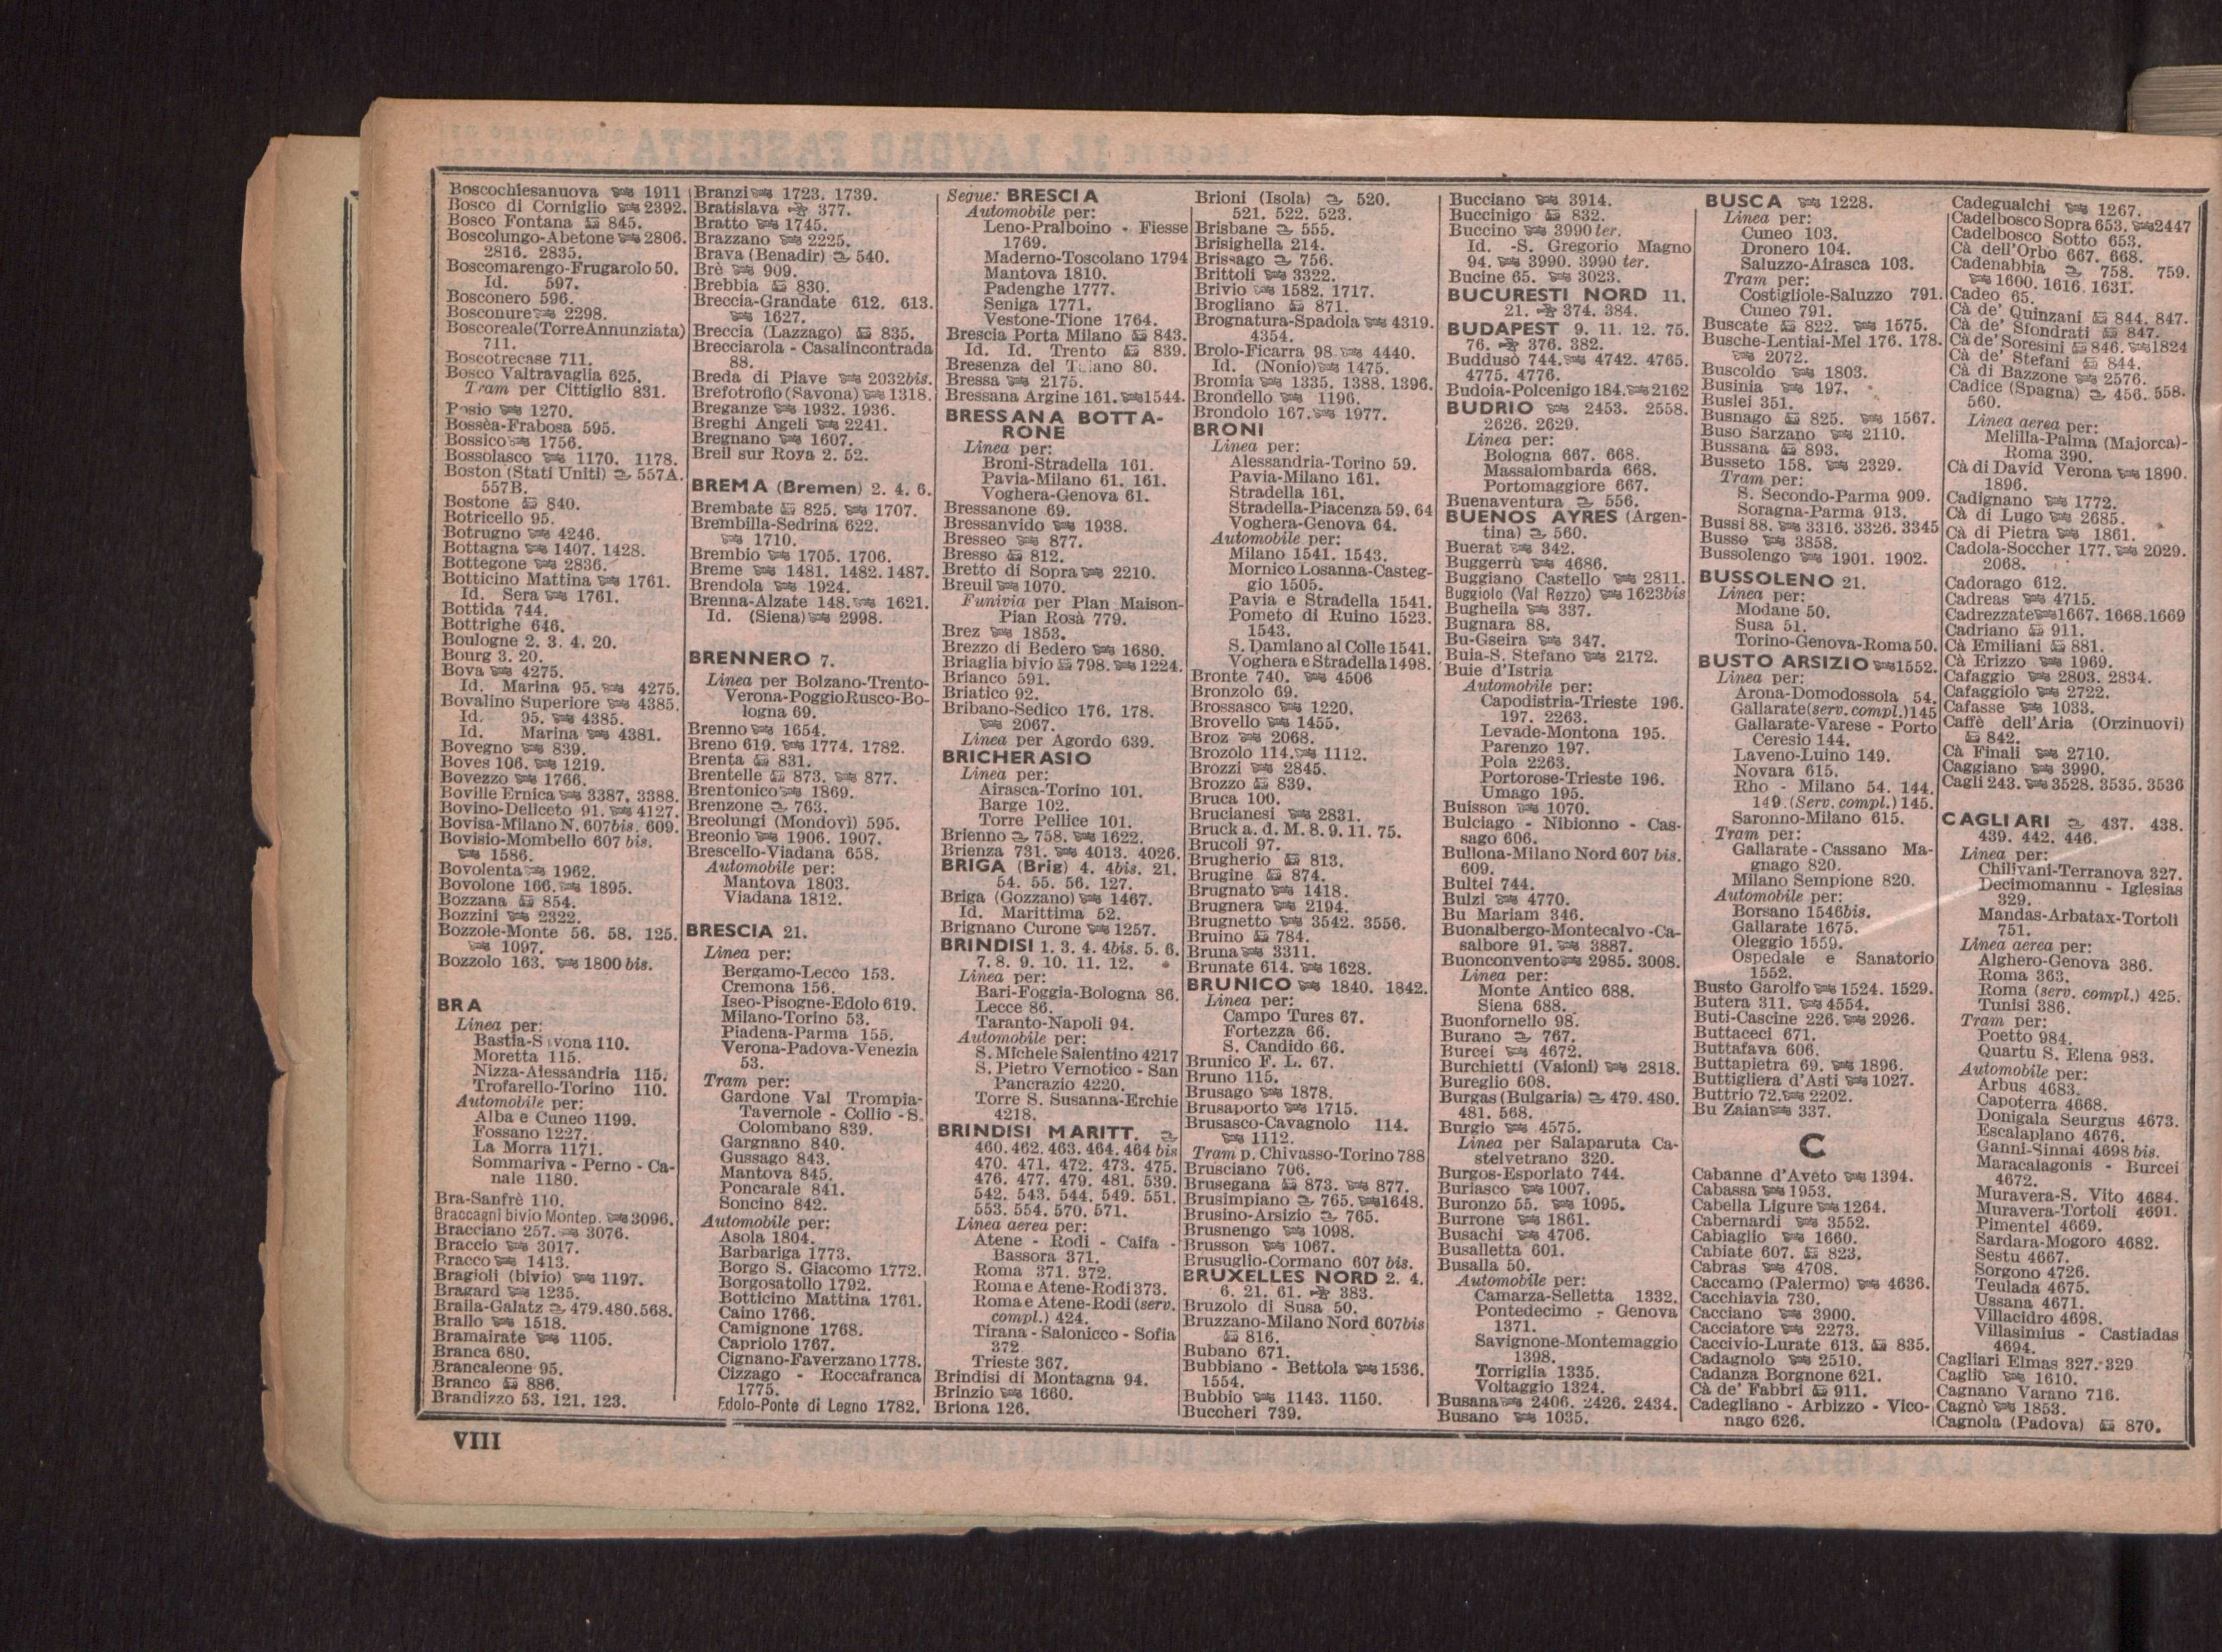 Boscochiesanuova 1911
Bosco di Corniglio 2392.
Bosco Fontana 845.
Boscolungo-Abetone 2806.
2816. 2835.
Boscomarengo-Frugarolo 50.
Id. 597.
Bosconero 596.
Bosconure 2298.
Boscoreale (Torre Annunziata)
711.
Boscotrecase 711.
Bosco Valtravaglia 625.
Tram per Cittiglio 831.
1270.
Bossèa-Frabosa 595.
Bossico 1756.
Bossolasco 1170. 1178.
Boston (Stati Uniti) 557A.
557B.
Bostone 840.
Botricello 95.
Botrugno 4246.
Bottagna 1407. 1428.
Bottegone 2836.
Botticino Mattina 1761.
Id. Sera 1761.
Bottida 744.
Bottrighe 646.
Boulogne 2. 3. 4. 20.
Bourg 3. 20.
Bova 4275.
Id. Marina 95. 4275.
Bovalino Superiore 4385.
Id. 95. 4385.
Id. Marina 4381.
Bovegno 839.
Boves 106. 1219.
Bovezzo 1766.
Boville Ernica 3387. 3388.
Bovino-Deliceto 91. 4127.
Bovisa-Milano N. 607bis. 609.
Bovisio-Mombello 607 bis.
1586.
Bovolenta 1962.
Bovolone 166. 1895.
Bozzana 854.
Bozzini 2322.
Bozzole-Monte 56. 58. 125.
1097.
Bozzolo 163. 1800 bis.
BRA
Linea per:
Bastia-Savona 110.
Moretta 115.
Nizza-Alessandria 115.
Trofarello-Torino 110.
Automobile per:
Alba e Cuneo 1199.
Fossano 1227.
La Morra 1171.
Sommariva - Perno - Ca-
nale 1180.
Bra-Sanfrè 110.
Braccagni bivio Montep. 3096.
Bracciano 257. 3076.
Braccio 3017.
Bracco 1413.
Bragioli (bivio) 1197.
Bragard 1235.
Braila-Galatz 479.480.568.
Brallo 1518.
Bramairate 1105.
Branca 680.
Brancaleone 95.
Branco 886.
Brandizzo 53. 121. 123.
Branzi 1723. 1739.
Bratislava 377.
Bratto 1745.
Brazzano 2225.
Brava (Benadir) 540.
Brè 909.
Brebbia 830.
Breccia-Grandate 612. 613.
1627.
Breccia (Lazzago) 835.
Brecciarola - Casalincontrada
88.
Breda di Piave 2032bis.
Brefotrofio (Savona) 1318.
Breganze 1932. 1936.
Breghi Angeli 2241.
Bregnano 1607.
Breil sur Roya 2. 52.
BREMA (Bremen) 2. 4. 6.
Brembate 825. 1707.
Brembilla-Sedrina 622.
1710.
Brembio 1705. 1706.
Breme 1481. 1482. 1487.
Brendola 1924.
Brenna-Alzate 148. 1621.
Id. (Siena) 2998.
BRENNERO 7.
Linea per Bolzano-Trento-
Verona-Poggio Rusco-Bo-
logna 69.
Brenno 1654.
Breno 619. 1774. 1782.
Brenta 831.
Brentelle 873. 877.
Brentonico 1869.
Brenzone 763.
Breolungi (Mondovì) 595.
Breonio 1906. 1907.
Brescello-Viadana 658.
Automobile per:
Mantova 1803.
Viadana 1812.
BRESCIA 21.
Linea per:
Bergamo-Lecco 153.
Cremona 156.
Iseo-Pisogne-Edolo 619.
Milano-Torino 53.
Piadena-Parma 155.
Verona-Padova-Venezia
53.
Tram per:
Gardone Val Trompia-
Tavernole - Collio - S.
Colombano 839.
Gargnano 840.
Gussago 843.
Mantova 845.
Poncarale 841.
Soncino 842.
Automobile per:
Asola 1804.
Barbariga 1773.
Borgo S. Giacomo 1772.
Borgosatollo 1792.
Botticino Mattina 1761.
Caino 1766.
Camignone 1768.
Capriolo 1767.
Cignano-Faverzano 1778.
Cizzago - Roccafranca
1775.
Edolo-Ponte di Legno 1782.
Segue: BRESCIA
Automobile per:
Leno-Pralboino - Fiesse
1769.
Maderno-Toscolano 1794
Mantova 1810.
Padenghe 1777.
Seniga 1771.
Vestone-Tione 1764.
Brescia Porta Milano 843.
Id. Id. Trento 839.
Bresenza del 80.
Bressa 2175.
Bressana Argine 161. 1544.
BRESSANA BOTTA-
RONE
Linea per:
Broni-Stradella 161.
Pavia-Milano 61. 161.
Voghera-Genova 61.
Bressanone 69.
Bressanvido 1938.
Bresseo 877.
Bresso 812.
Bretto di Sopra 2210.
Breuil 1070.
Funivia per Plan Maison-
Pian Rosà 779.
Brez 1853.
Brezzo di Bedero 1680.
Briaglia bivio 798. 1224.
Brianco 591.
Briatico 92.
Bribano-Sedico 176. 178.
2067.
Linea per Agordo 639.
BRICHERASIO
Linea per:
Airasca-Torino 101.
Barge 102.
Torre Pellice 101.
Brienno 758. 1622.
Brienza 731. 4013. 4026.
BRIGA (Brig) 4. 4bis. 21.
54. 55. 56. 127.
Briga (Gozzano) 1467.
Id. Marittima 52.
Brignano Curone 1257.
BRINDISI 1. 3. 4. 4bis. 5. 6.
7. 8. 9. 10. 11. 12.
Linea per:
Bari-Foggia-Bologna 86.
Lecce 86.
Taranto-Napoli 94.
Automobile per:
S. Michele Salentino 4217
S. Pietro Vernotico - San
Pancrazio 4220.
Torre S. Susanna-Erchie
4218.
BRINDISI MARITT.
460. 462. 463. 464. 464 bis
470. 471. 472. 473. 475.
476. 477. 479. 481. 539.
542. 543. 544. 549. 551.
553. 554. 570. 571.
Linea aerea per:
Atene - Rodi - Caifa -
Bassora 371.
Roma 371. 372.
Roma e Atene-Rodi 373.
Roma e Atene-Rodi (serv.
compl.) 424.
Tirana - Salonicco - Sofia
372
Trieste 367.
Brindisi di Montagna 94.
Brinzio 1660.
Briona 126.
Brioni (Isola) 520.
521. 522. 523.
Brisbane 555.
Brisighella 214.
Brissago 756.
Brittoli 3322.
Brivio 1582. 1717.
Brogliano 871.
Brognatura-Spadola 4319.
4354.
Brolo-Ficarra 98. 4440.
Id. (Nonio) 1475.
Bromia 1335. 1388. 1396.
Brondello 1196.
Brondolo 167. 1977.
BRONI
Linea per:
Alessandria-Torino 59.
Pavia-Milano 161.
Stradella 161.
Stradella-Piacenza 59. 64
Voghera-Genova 64.
Automobile per:
Milano 1541. 1543.
Mornico Losanna-Casteg-
gio 1505.
Pavia e Stradella 1541.
Pometo di Ruino 1523.
1543.
S. Damiano al Colle 1541.
Voghera e Stradella 1498.
Bronte 740. 4506
Bronzolo 69.
Brossasco 1220.
Brovello 1455.
Broz 2068.
Brozolo 114. 1112.
Brozzi 2845.
Brozzo 839.
Bruca 100.
Brucianesi 2831.
Bruck a. d. M. 8. 9. 11. 75.
Brucoli 97.
Brugherio 813.
Brugine 874.
Brugnato 1418.
Brugnera 2194.
Brugnetto 3542. 3556.
Bruino 784.
Bruna 3311.
Brunate 614. 1628.
BRUNICO 1840. 1842.
Linea per:
Campo Tures 67.
Fortezza 66.
S. Candido 66.
Brunico F. L. 67.
Bruno 115.
Brusago 1878.
Brusaporto 1715.
Brusasco-Cavagnolo 114.
1112.
Tram p. Chivasso-Torino 788
Brusciano 706.
Brusegana 873. 877.
Brusimpiano 765. 1648.
Brusino-Arsizio 765.
Brusnengo 1098.
Brusson 1067.
Brusuglio-Cormano 607 bis.
BRUXELLES NORD 2. 4.
6. 21. 61. 383.
Bruzolo di Susa 50.
Bruzzano-Milano Nord 607bis
816.
Bubano 671.
Bubbiano - Bettola 1536.
1554.
Bubbio 1143. 1150.
Buccheri 739.
Bucciano 3914.
Buccinigo 832.
Buccino 3990 ter.
Id. -S. Gregorio Magno
94. 3990. 3990 ter.
Bucine 65. 3023.
BUCURESTI NORD 11.
21. 374. 384.
BUDAPEST 9. 11. 12. 75.
76. 376. 382.
Buddusò 744. 4742. 4765.
4775. 4776.
Budoia-Polcenigo 184. 2162
BUDRIO 2453. 2558.
2626. 2629.
Linea per:
Bologna 667. 668.
Massalombarda 668.
Portomaggiore 667.
Buenaventura 556.
BUENOS AYRES (Argen-
tina) 560.
Buerat 342.
Buggerrù 4686.
Buggiano Castello 2811.
Buggiolo (Val Rezzo) 1623bis
Bugheila 337.
Bugnara 88.
Bu-Gseira 347.
Buia-S. Stefano 2172.
Buie d'Istria
Automobile per:
Capodistria-Trieste 196.
197. 2263.
Levade-Montona 195.
Parenzo 197.
Pola 2263.
Portorose-Trieste 196.
Umago 195.
Buisson 1070.
Bulciago - Nibionno - Cas-
sago 606.
Bullona-Milano Nord 607 bis.
609.
Bultei 744.
Bulzi 4770.
Bu Mariam 346.
Buonalbergo-Montecalvo-Ca-
salbore 91. 3887.
Buonconvento 2985. 3008.
Linea per:
Monte Antico 688.
Siena 688.
Buonfornello 98.
Burano 767.
Burcei 4672.
Burchietti (Vaioni) 2818.
Bureglio 608.
Burgas (Bulgaria) 479. 480.
481. 568.
Burgio 4575.
Linea per Salaparuta Ca-
stelvetrano 320.
Burgos-Esporlato 744.
Buriasco 1007.
Buronzo 55. 1095.
Burrone 1861.
Busachi 4706.
Busalletta 601.
Busalla 50.
Automobile per:
Camarza-Selletta 1332.
Pontedecimo - Genova
1371.
Savignone-Montemaggio
1398.
Torriglia 1335.
Voltaggio 1324.
Busana 2406. 2426. 2434.
Busano 1035.
BUSCA 1228.
Linea per:
Cuneo 103.
Dronero 104.
Saluzzo-Airasca 103.
Tram per:
Costigliole-Saluzzo 791.
Cuneo 791.
Buscate 822. 1575.
Busche-Lentiai-Mel 176. 178.
2072.
Buscoldo 1803.
Businia 197.
Buslei 351.
Busnago 825. 1567.
Buso Sarzano 2110.
Bussana 893.
Busseto 158. 2329.
Tram per:
S. Secondo-Parma 909.
Soragna-Parma 913.
Bussi 88. 3316. 3326. 3345
Busso 3858.
Bussolengo 1901. 1902.
BUSSOLENO 21.
Linea per:
Modane 50.
Susa 51.
Torino-Genova-Roma 50.
BUSTO ARSIZIO 1552.
Linea per:
Arona-Domodossola 54.
Gallarate (serv. compl.) 145
Gallarate-Varese - Porto
Ceresio 144.
Laveno-Luino 149.
Novara 615.
Rho - Milano 54. 144.
149. (Serv. compl.) 145.
Saronno-Milano 615.
Tram per:
Gallarate - Cassano Ma-
gnago 820.
Milano Sempione 820.
Automobile per:
Borsano 1546bis.
Gallarate 1675.
Oleggio 1559.
Ospedale e Sanatorio
1552.
Busto Garolfo 1524. 1529.
Butera 311. 4554.
Buti-Cascine 226. 2926.
Buttaceci 671.
Buttafava 606.
Buttapietra 69. 1896.
Buttigliera d'Asti 1027.
Buttrio 72. 2202.
Bu Zaian 337.
C
Cabanne d'Aveto 1394.
Cabassa 1953.
Cabella Ligure 1264.
Cabernardi 3552.
Cabiaglio 1660.
Cabiate 607. 823.
Cabras 4708.
Caccamo (Palermo) 4636.
Cacchiavia 730.
Cacciano 3900.
Cacciatore 2273.
Caccivio-Lurate 613. 835.
Cadagnolo 2510.
Cadanza Borgnone 621.
Cà de' Fabbri 911.
Cadegliano - Arbizzo - Vico-
nago 626.
Cadegualchi 1267.
Cadelbosco Sopra 653. 2447
Cadelbosco Sotto 653.
Cà dell'Orbo 667. 668.
Cadenabbia 758. 759.
1600. 1616. 1631.
Cadeo 65.
Cà de' Quinzani 844. 847.
Cà de' Sfondrati 847.
Cà de' Soresini 846. 1824
Cà de' Stefani 844.
Cà di Bazzone 2576.
Cadice (Spagna) 456. 558.
560.
Linea aerea per:
Melilla-Palma (Majorca)-
Roma 390.
Cà di David Verona 1890.
1896.
Cadignano 1772.
Cà di Lugo 2685.
Cà di Pietra 1861.
Cadola-Soccher 177. 2029.
2068.
Cadorago 612.
Cadreas 4715.
Cadrezzate 1667. 1668.1669
Cadriano 911.
Cà Emiliani 881.
Cà Erizzo 1969.
Cafaggio 2803. 2834.
Cafaggiolo 2722.
Cafasse 1033.
Caffè dell'Aria (Orzinuovi)
842.
Cà Finali 2710.
Caggiano 3990.
Cagli 243. 3528. 3535. 3536
CAGLIARI 437. 438.
439. 442. 446.
Linea per:
Chilivani-Terranova 327.
Decimomannu - Iglesias
329.
Mandas-Arbatax-Tortoli
751.
Linea aerea per:
Alghero-Genova 386.
Roma 363.
Roma (serv. compl.) 425.
Tunisi 386.
Tram per:
Poetto 984.
Quartu S. Elena 983.
Automobile per:
Arbus 4683.
Capoterra 4668.
Donigala Seurgus 4673.
Escalaplano 4676.
Ganni-Sinnai 4698 bis.
Maracalagonis - Burcei
4672.
Muravera-S. Vito 4684.
Muravera-Tortoli 4691.
Pimentel 4669.
Sardara-Mogoro 4682.
Sestu 4667.
Sorgono 4726.
Teulada 4675.
Ussana 4671.
Villacidro 4698.
Villasimius - Castiadas
4694.
Cagliari Elmas 327. 329
Caglio 1610.
Cagnano Varano 716.
Cagnò 1853.
Cagnola (Padova) 870.
VIII